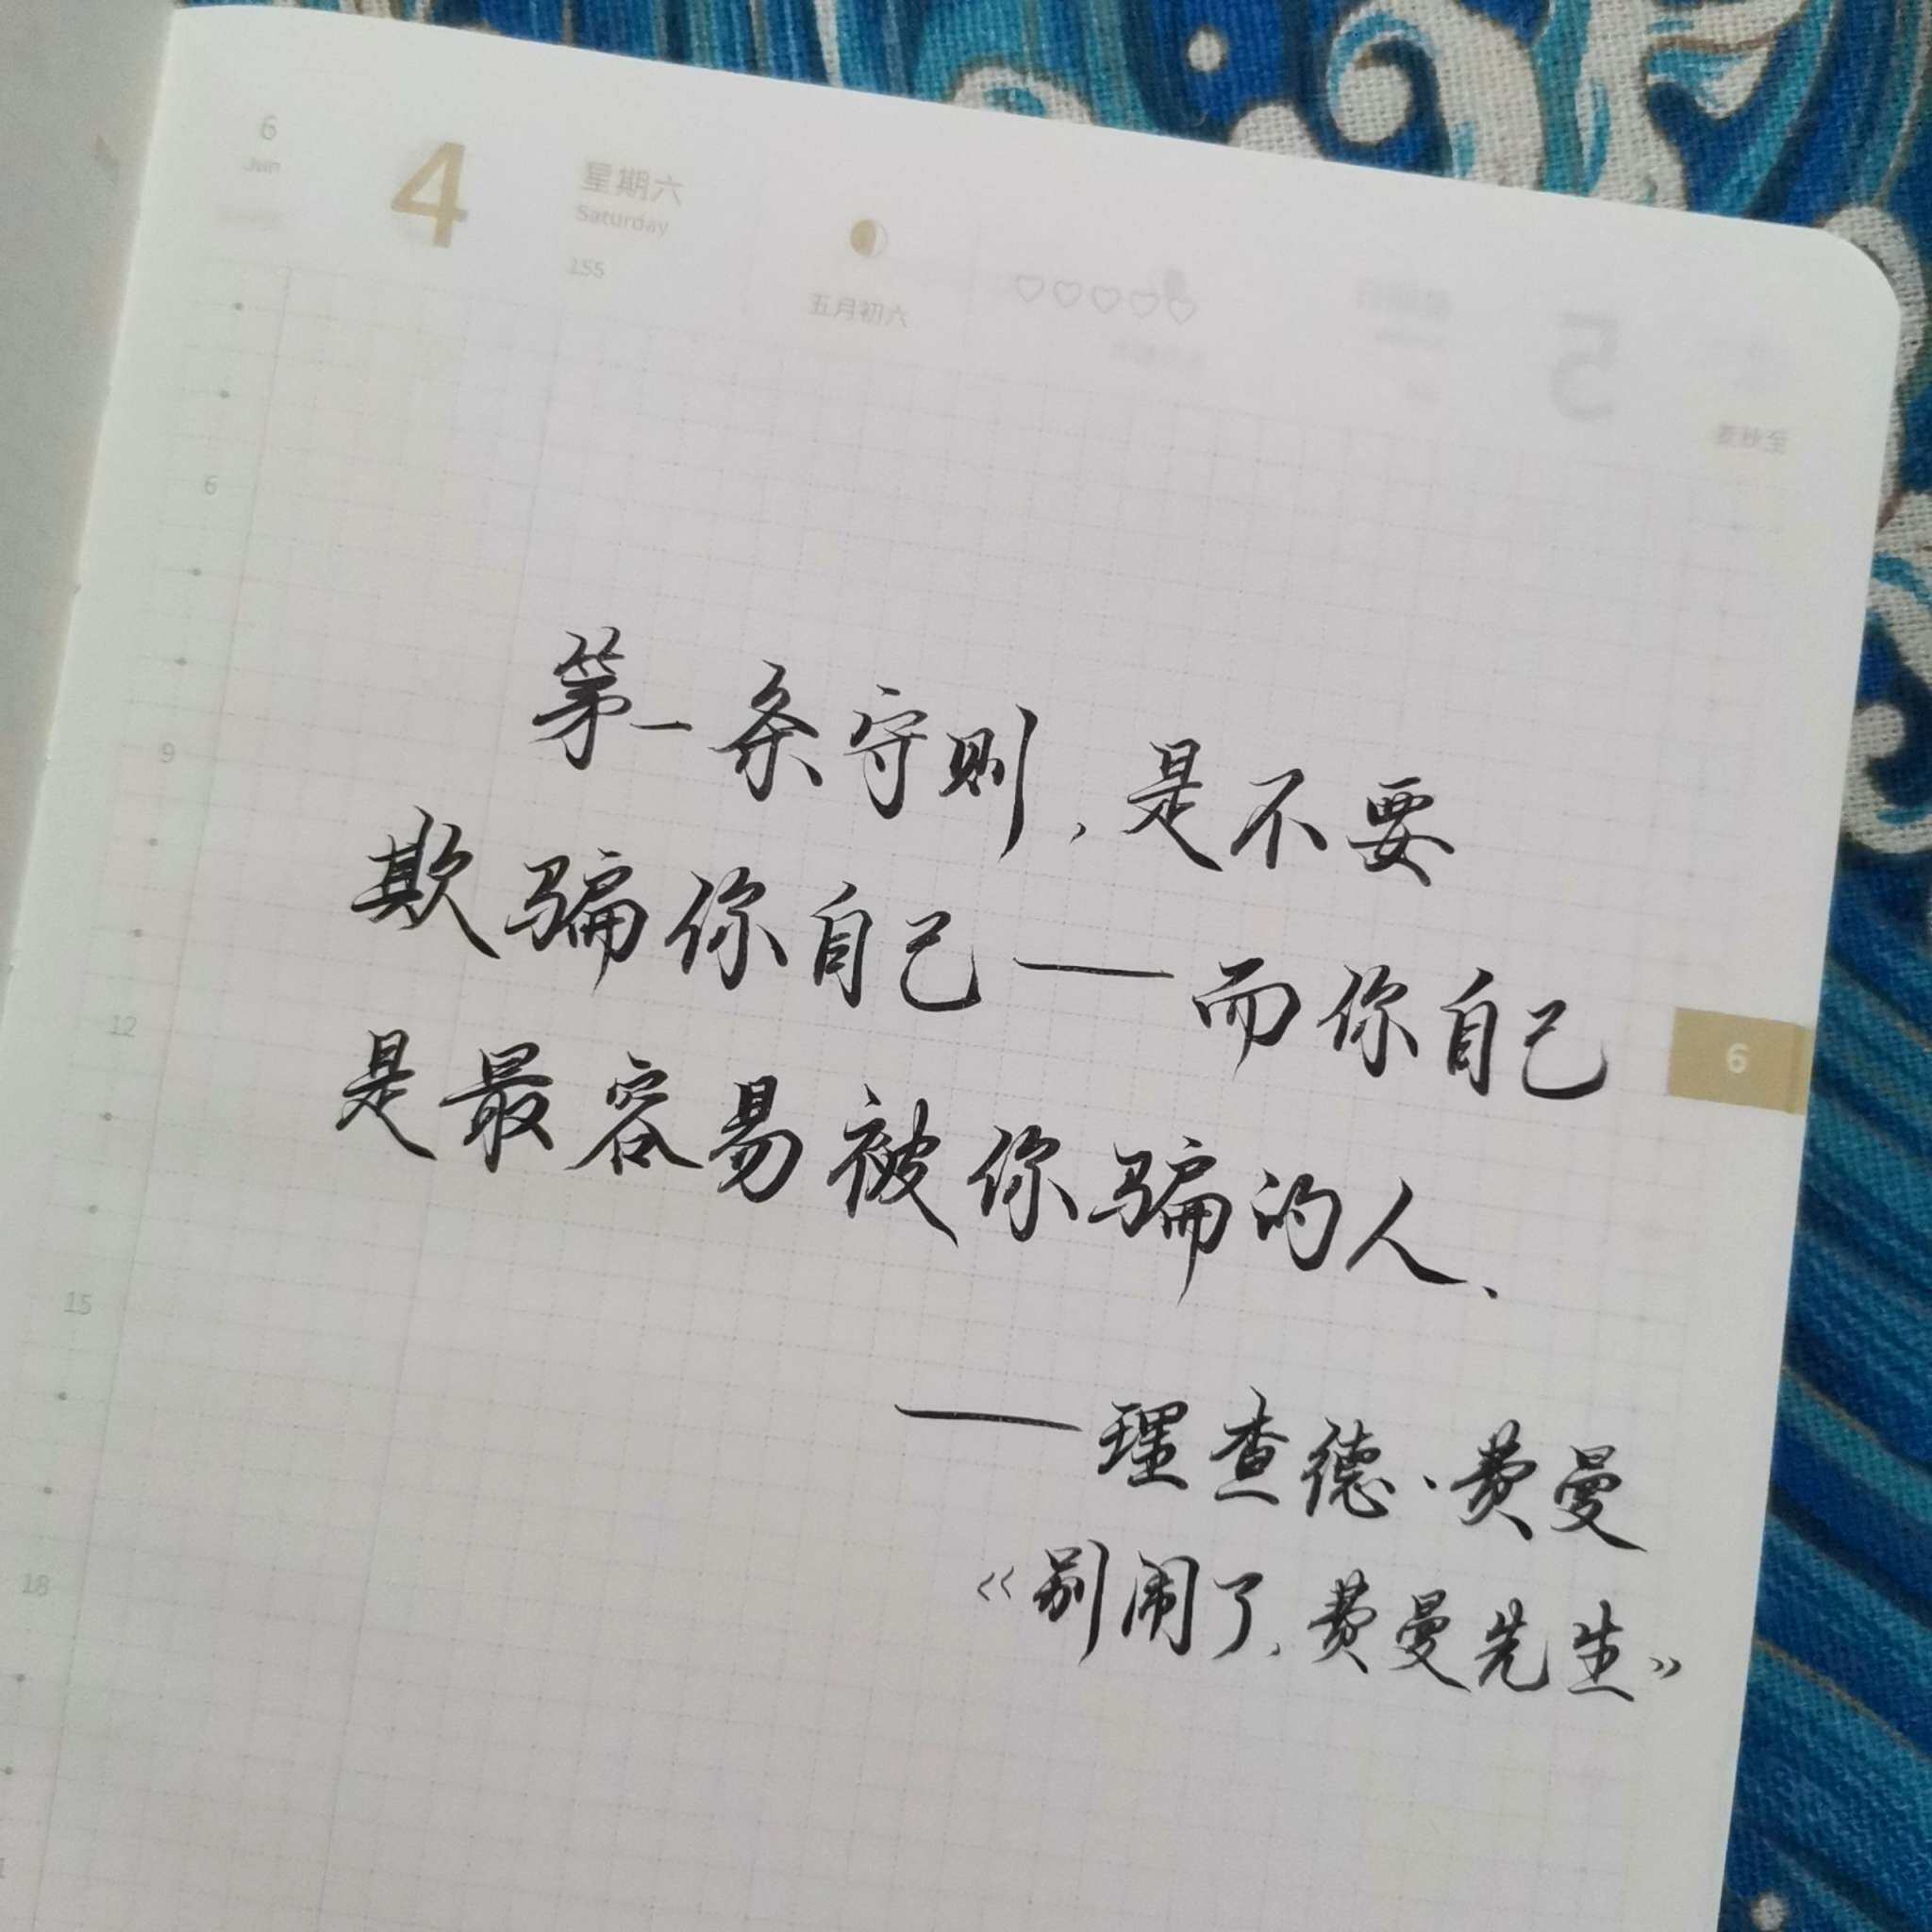 6
Jun
4
星期六
Saturday
155
五月初六
5
6
9
12
15
18
6
第一条守则，是不要
欺骗你自己——而你自己
是最容易被你骗的人、
——理查德·费曼
《别闹了，费曼先生》